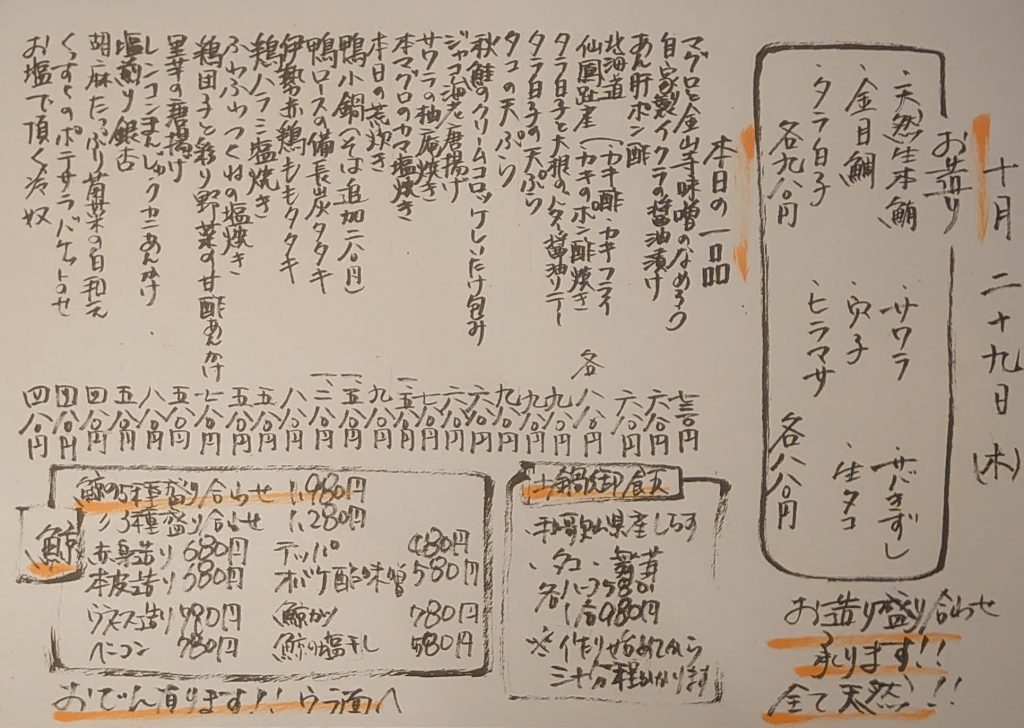 十月二十九日(木)
お造り
・天然生本鮪
・金目鯛
・タラ白子
各九八〇円
・サワラ
・穴子
・ヒラマサ
・サバきずし
・生タコ
各八八〇円
お造り盛り合わせ
承ります!!
全て天然!!
本日の一品
マグロと金山寺味噌のなめろう 七三〇円
自家製イクラの醤油漬け 六八〇円
あん肝ポン酢 六八〇円
北海道
仙鳳趾産(カキ酢・カキフライ
(カキのポン酢焼き 各八八〇円
タラ白子と大根のバター醤油ソテー 九八〇円
タラ白子の天ぷら 九八〇円
タコの天ぷら 九八〇円
秋鮭のクリームコロッケしいたけ包み 六八〇円
ジャコ海老唐揚げ 六八〇円
サワラの柚庵焼き 七八〇円
本マグロのカマ塩焼き 一、五八〇円
本日の荒炊き 九八〇円
鴨小鍋(そば追加二八〇円) 一、五八〇円
鴨ロースの備長炭タタキ 一、二八〇円
伊勢赤鶏ももタタキ 八八〇円
鶏ハラミ塩焼き 五八〇円
ふわふわつくねの塩焼き 五八〇円
鶏団子と彩り野菜の甘酢あんかけ 七八〇円
里芋の唐揚げ 五八〇円
レンコンまんじゅうカニあんかけ 八八〇円
塩煎り銀杏 五八〇円
胡麻たっぷり菊菜の白和え 四八〇円
くっすくのポテサラバケット付き 四八〇円
お塩で頂く冷奴 四八〇円
土鍋御飯
・和歌山県産しらす
・タコ ・舞茸
各ハーフ580円
1合980円
※作り始めてから
三十分程かかります
鯨
鯨の5種盛り合わせ 1,980円
〃3種盛り合わせ 1,280円
赤身造り 680円
テッパ 480円
本皮造り 580円
オバケ酢味噌 580円
ウネス造り 780円
鯨カツ 780円
ベーコン 780円
鯨の塩干し 580円
おでん有ります!! ウラ面へ